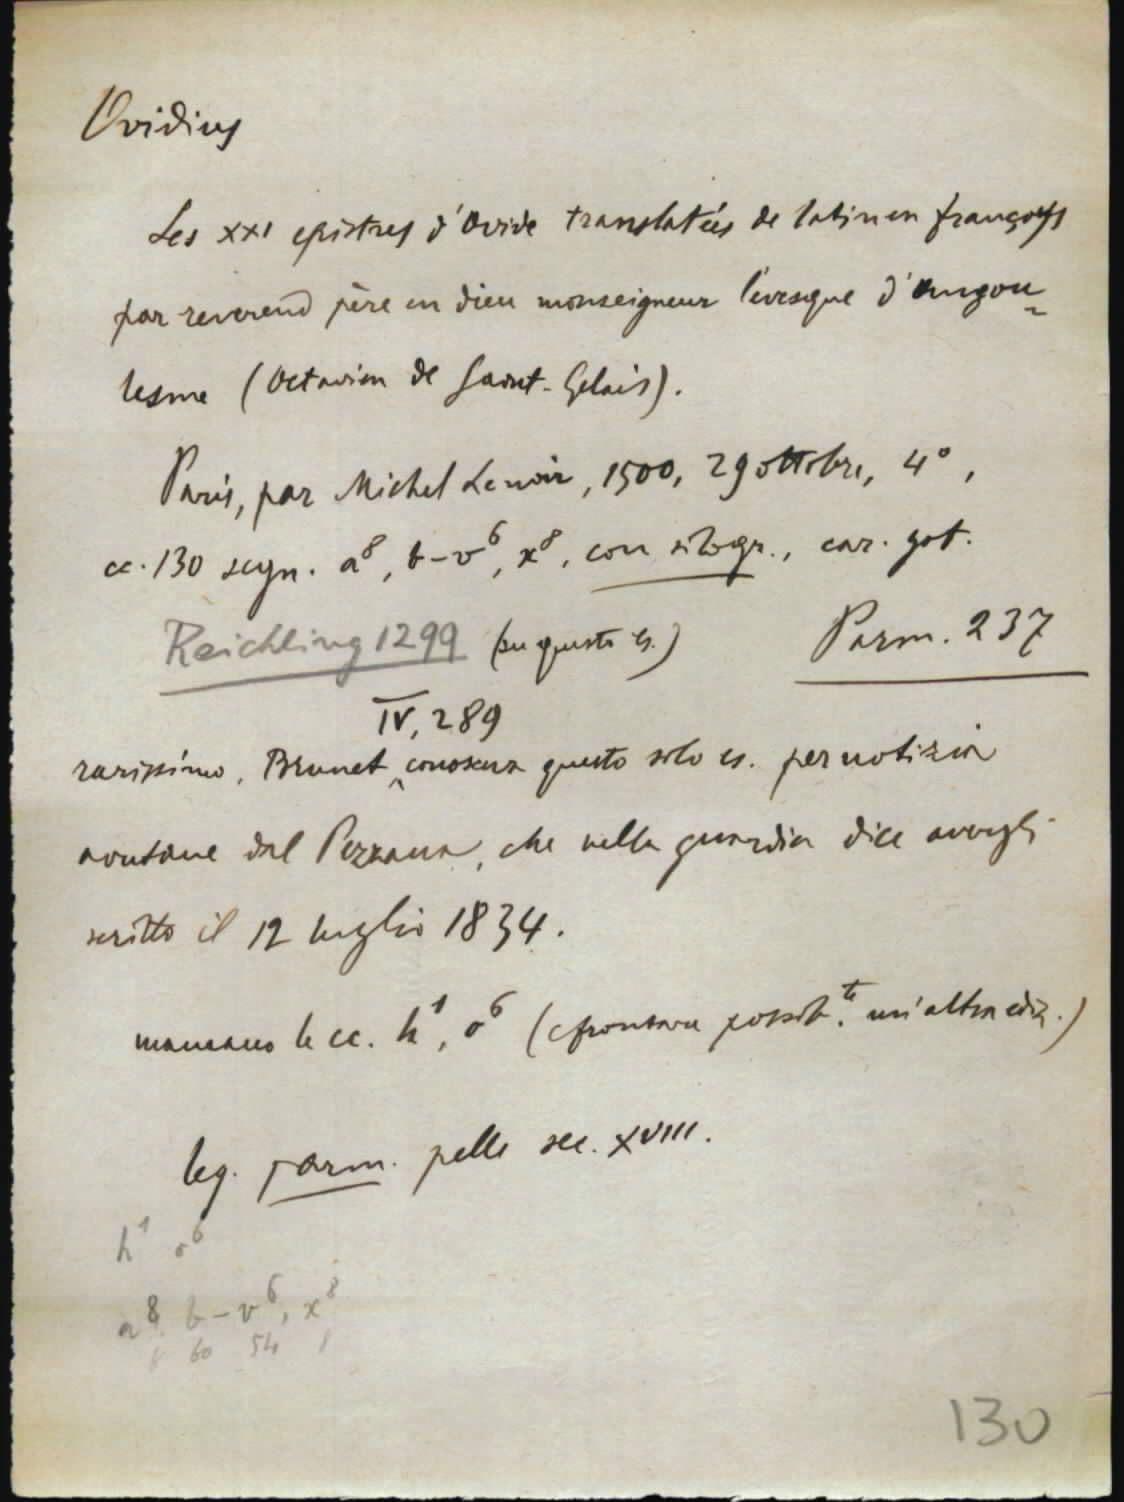 Ovidius
Les XXI epistres d'Ovide translatées de latin en françoys
par reverend père en dieu monseigneur l'evesque d'Angou-
lesme (Octavien de Saint-Gelais).
Paris, par Michel Lenoir, 1500, 29 ottobre, 4°,
cc. 130 segn. a⁸, b-v⁶, x⁸, con silogr., car. got.
Reichling 1299 (su questo es.) Parm. 237
IV, 289
rarissimo, Brunet conosceva questo solo es. per notizia
avutane dal Pezzana, che nella guardia dice avergli
scritto il 12 luglio 1834.
mancano le cc. h¹, o⁶ (cfrontare possib.te un'altra ediz.)
leg. parm. pelle sec. XVIII.
h¹ o⁶
a⁸, b-v⁶, x⁸
8 60 54 8
130